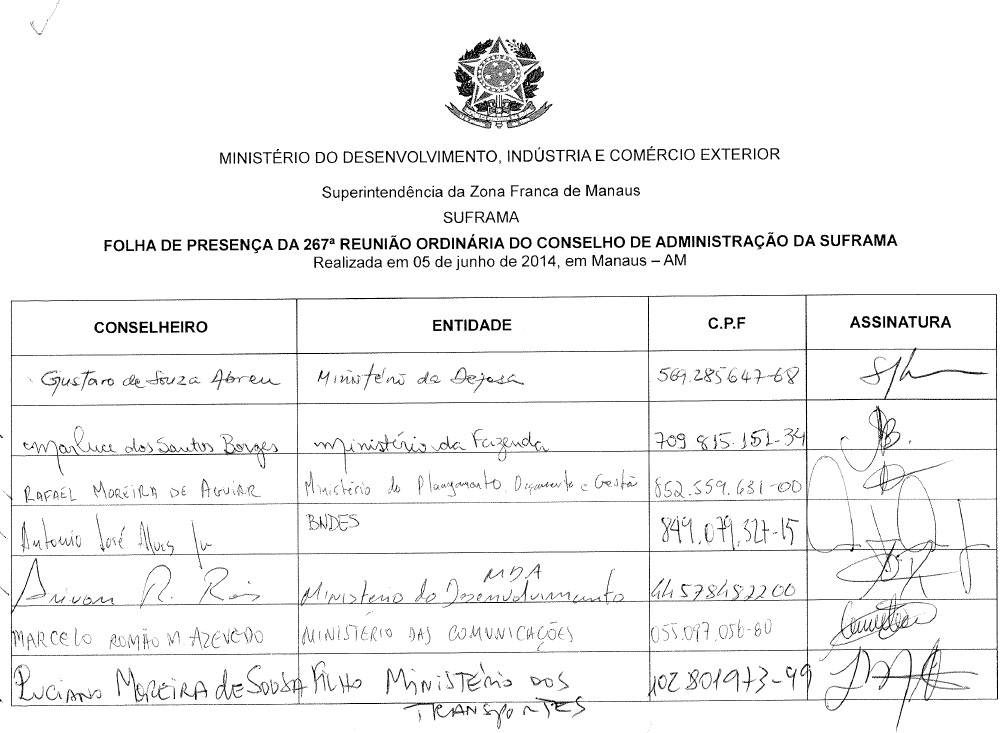 MINISTÉRIO DO DESENVOLVIMENTO, INDÚSTRIA E COMÉRCIO EXTERIOR
Superintendência da Zona Franca de Manaus
SUFRAMA
FOLHA DE PRESENÇA DA 267ª REUNIÃO ORDINÁRIA DO CONSELHO DE ADMINISTRAÇÃO DA SUFRAMA
Realizada em 05 de junho de 2014, em Manaus – AM
CONSELHEIRO ENTIDADE C.P.F ASSINATURA
Gustavo de Souza Abreu Ministério da Defesa 569.285647-68
Marluce dos Santos Borges Ministério da Fazenda 709 815.151-34
RAFAEL MOREIRA DE AGUIAR Ministério do Planejamento, Orçamento e Gestão 852.559.631-00
Antonio José Alves Jr BNDES 849.079.327-15
MDA
R. Ministério do Desenvolvimento 44578482200
MARCELO ROMÃO M AZEVEDO MINISTÉRIO DAS COMUNICAÇÕES 055.097.056-60
LUCIANO MOREIRA DE SOUSA FILHO MINISTÉRIO DOS 102801973-99
TRANSPORTES